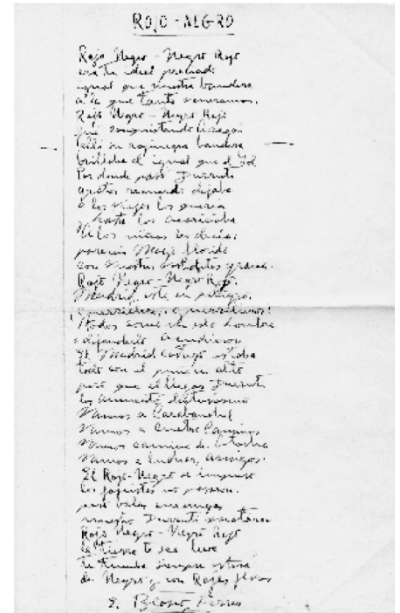 ROJO - NEGRO
Rojo Negro - Negro Rojo
era tu ideal preciado
igual que nuestra bandera
a la que tanto veneramos.
Rojo Negro - Negro Rojo
que conquistando Aragón
su rojinegra bandera
brillaba al igual que el Sol
Por donde pasó Durruti
gratos recuerdo dejaba
a los viejos los quería
hasta los acariciaba
A los niños les decía:
parecéis Mayo florido
con vuestras
Rojo Negro - Negro Rojo
Madrid está en peligro,
¡guerrilleros, guerrilleros!
Todos como un solo hombre
a defenderlo acudieron
El Madrid estaba
todo con el puño en alto
pero que al llegar Durruti
los aumentó
Vamos a Carabanchel
Vamos a Cuatro Caminos
Vamos camino de
Vamos a luchar, amigos.
El Rojo-Negro se impuso
los fascistas no pasaron.
pero balas enemigas
nuestro Durruti mataron
Rojo Negro - Negro Rojo
la tierra te sea leve
tu tumba siempre estará
de Negro y con Rojas flores